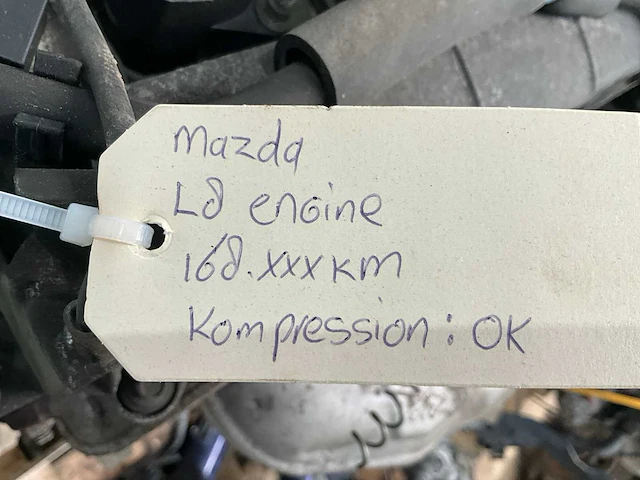 Mazda
L8 engine
168.xxx km
Kompression: OK